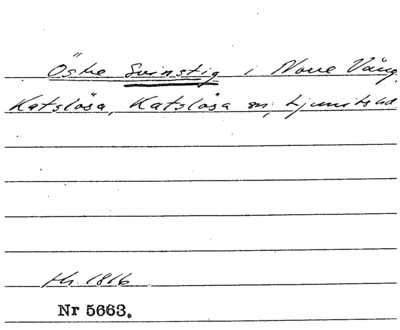 Östre Svinstig i Norre Vång,
Katslösa, Katslösa sn, Ljunits hd.
Hr. 1816
Nr 5663.